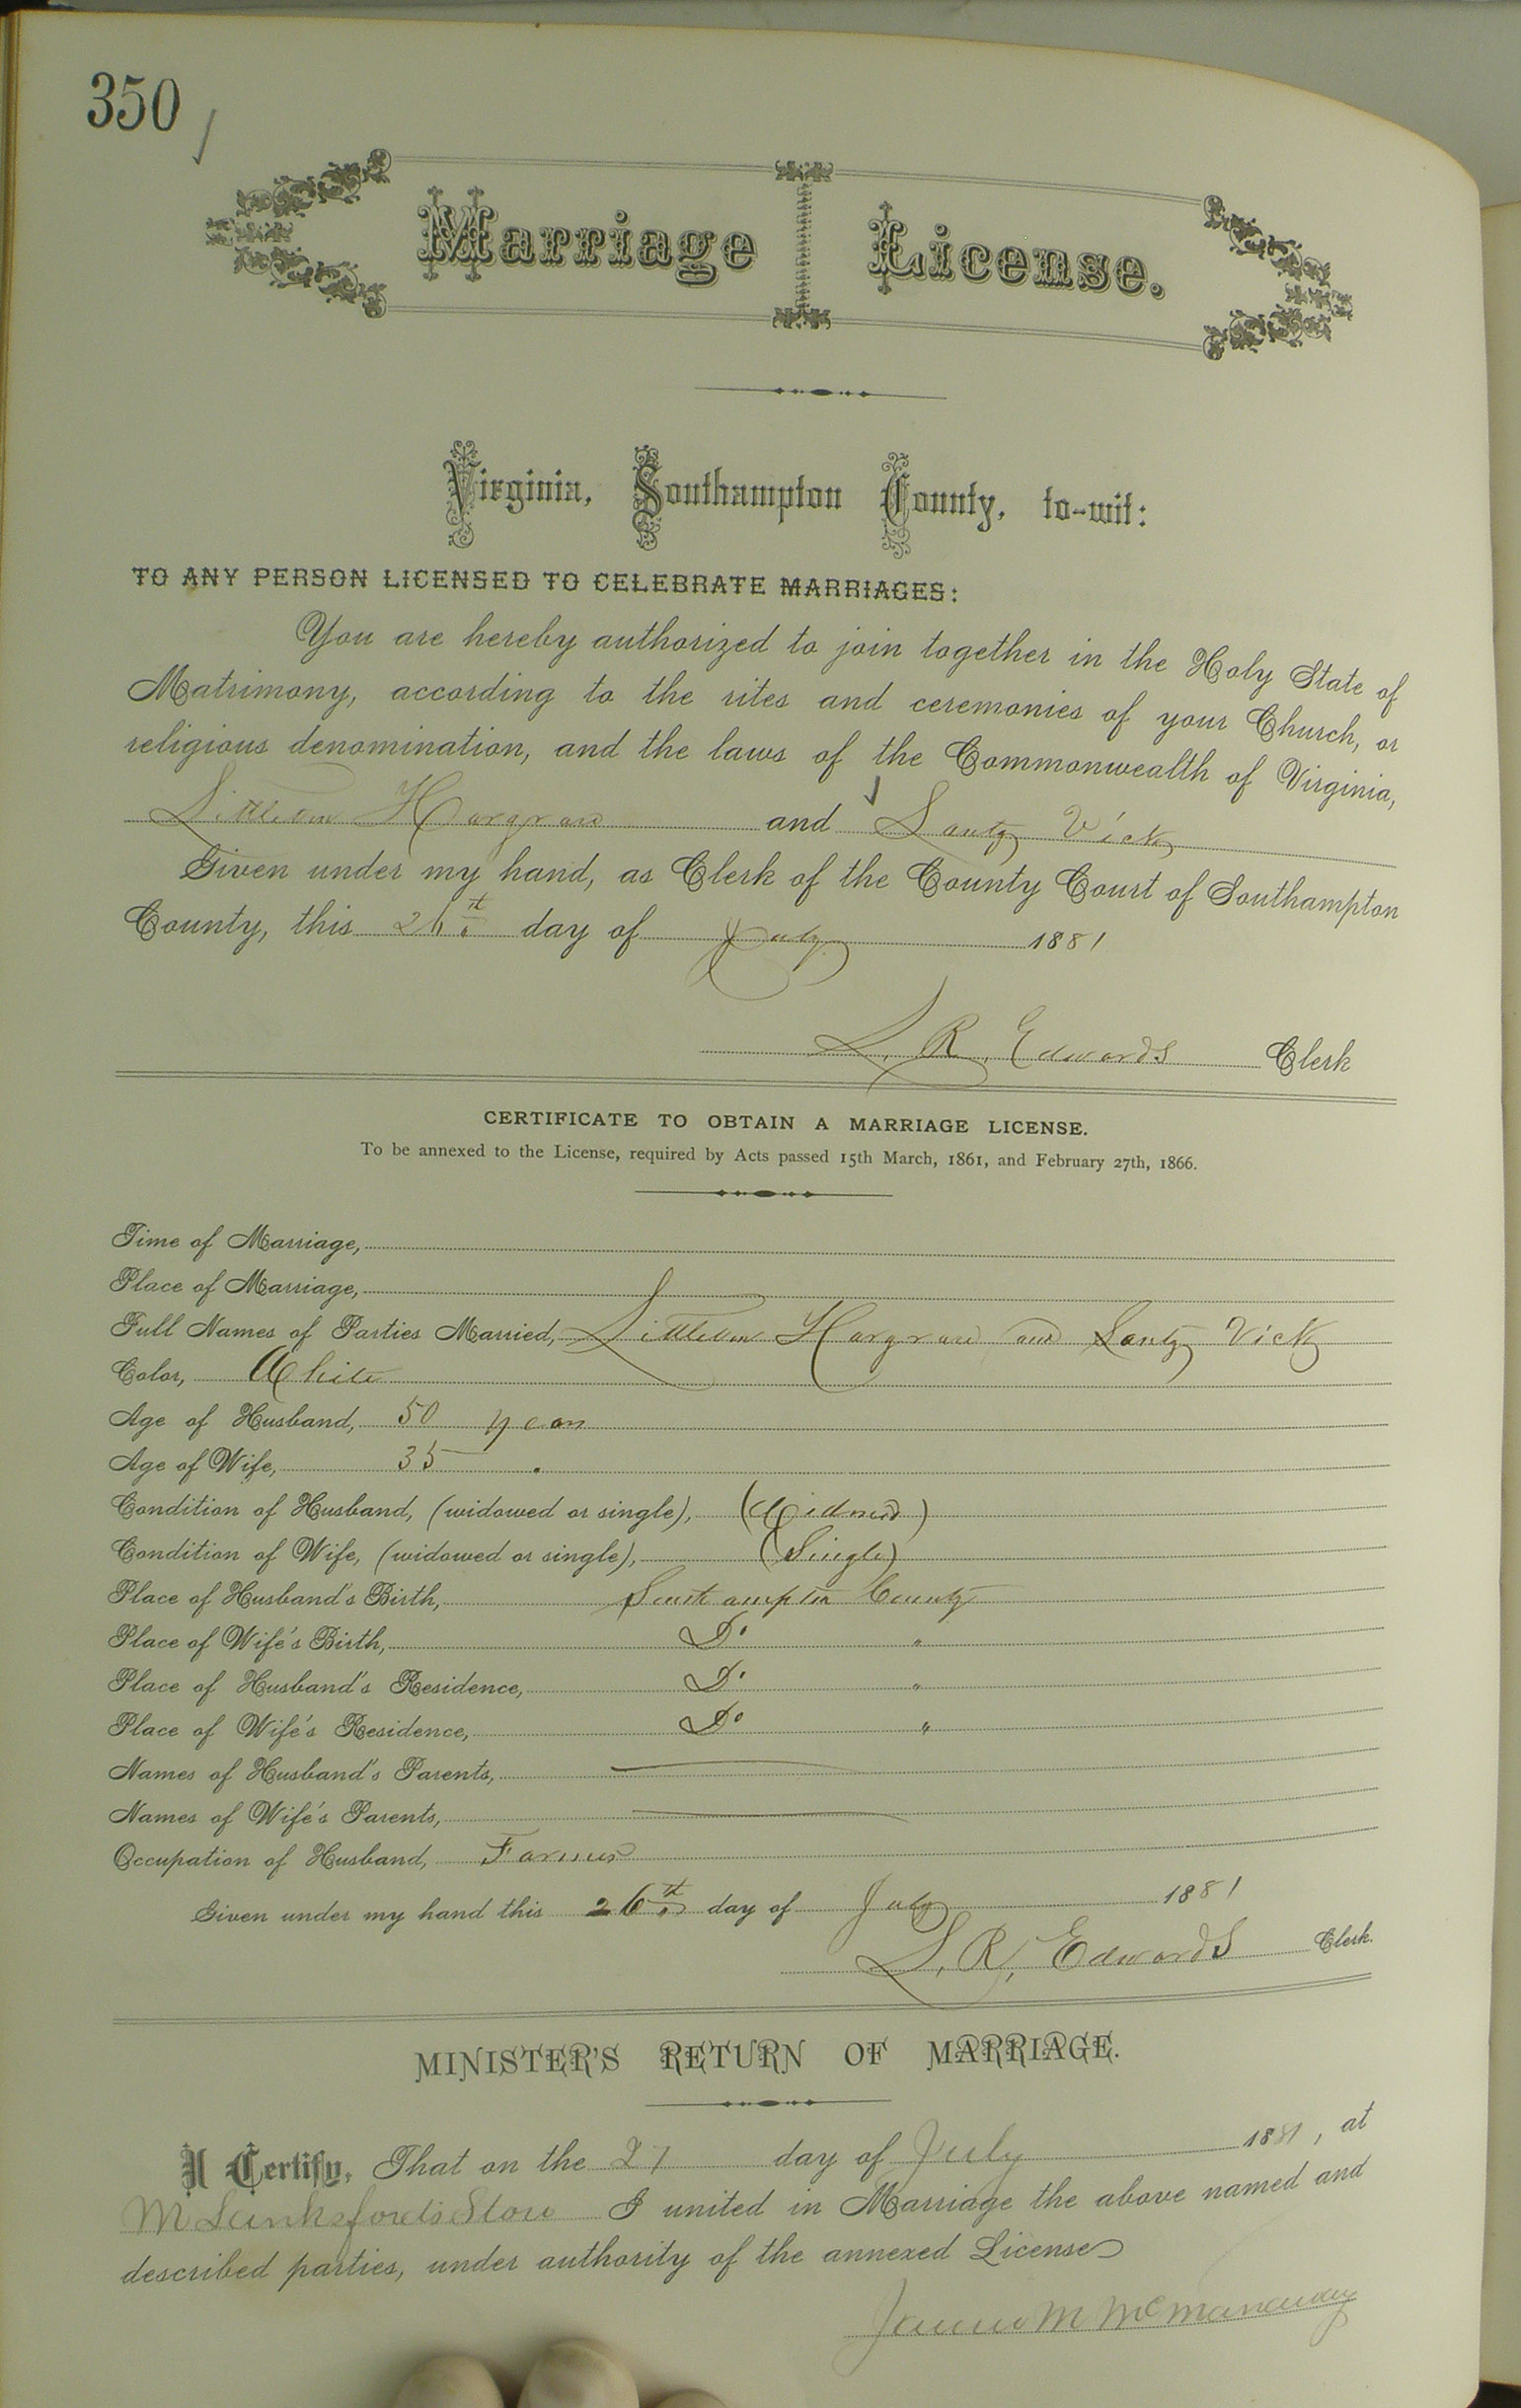 350
Marriage License.
Virginia, Southampton County, to-wit:
TO ANY PERSON LICENSED TO CELEBRATE MARRIAGES:
You are hereby authorized to join together in the Holy State of
Matrimony, according to the rites and ceremonies of your Church, or
religious denomination, and the laws of the Commonwealth of Virginia,
Littleton Hargrave and Vick
Given under my hand, as Clerk of the County Court of Southampton
County, this 26th day of July 1881
L. R. Edwards Clerk
CERTIFICATE TO OBTAIN A MARRIAGE LICENSE.
To be annexed to the License, required by Acts passed 15th March, 1861, and February 27th, 1866.
Time of Marriage,
Place of Marriage,
Full Names of Parties Married, Littleton Hargrave and Vick
Color, White
Age of Husband, 50 years
Age of Wife, 35 "
Condition of Husband, (widowed or single), (Widowed)
Condition of Wife, (widowed or single), (Single)
Place of Husband's Birth, Southampton County
Place of Wife's Birth, Do "
Place of Husband's Residence, Do "
Place of Wife's Residence, Do "
Names of Husband's Parents,
Names of Wife's Parents,
Occupation of Husband, Farmer
Given under my hand this 26th day of July 1881
L. R. Edwards Clerk.
MINISTER'S RETURN OF MARRIAGE.
I Certify, That on the 27 day of July 1881, at
M Lankfords Store I united in Marriage the above named and
described parties, under authority of the annexed License
James M McManaway